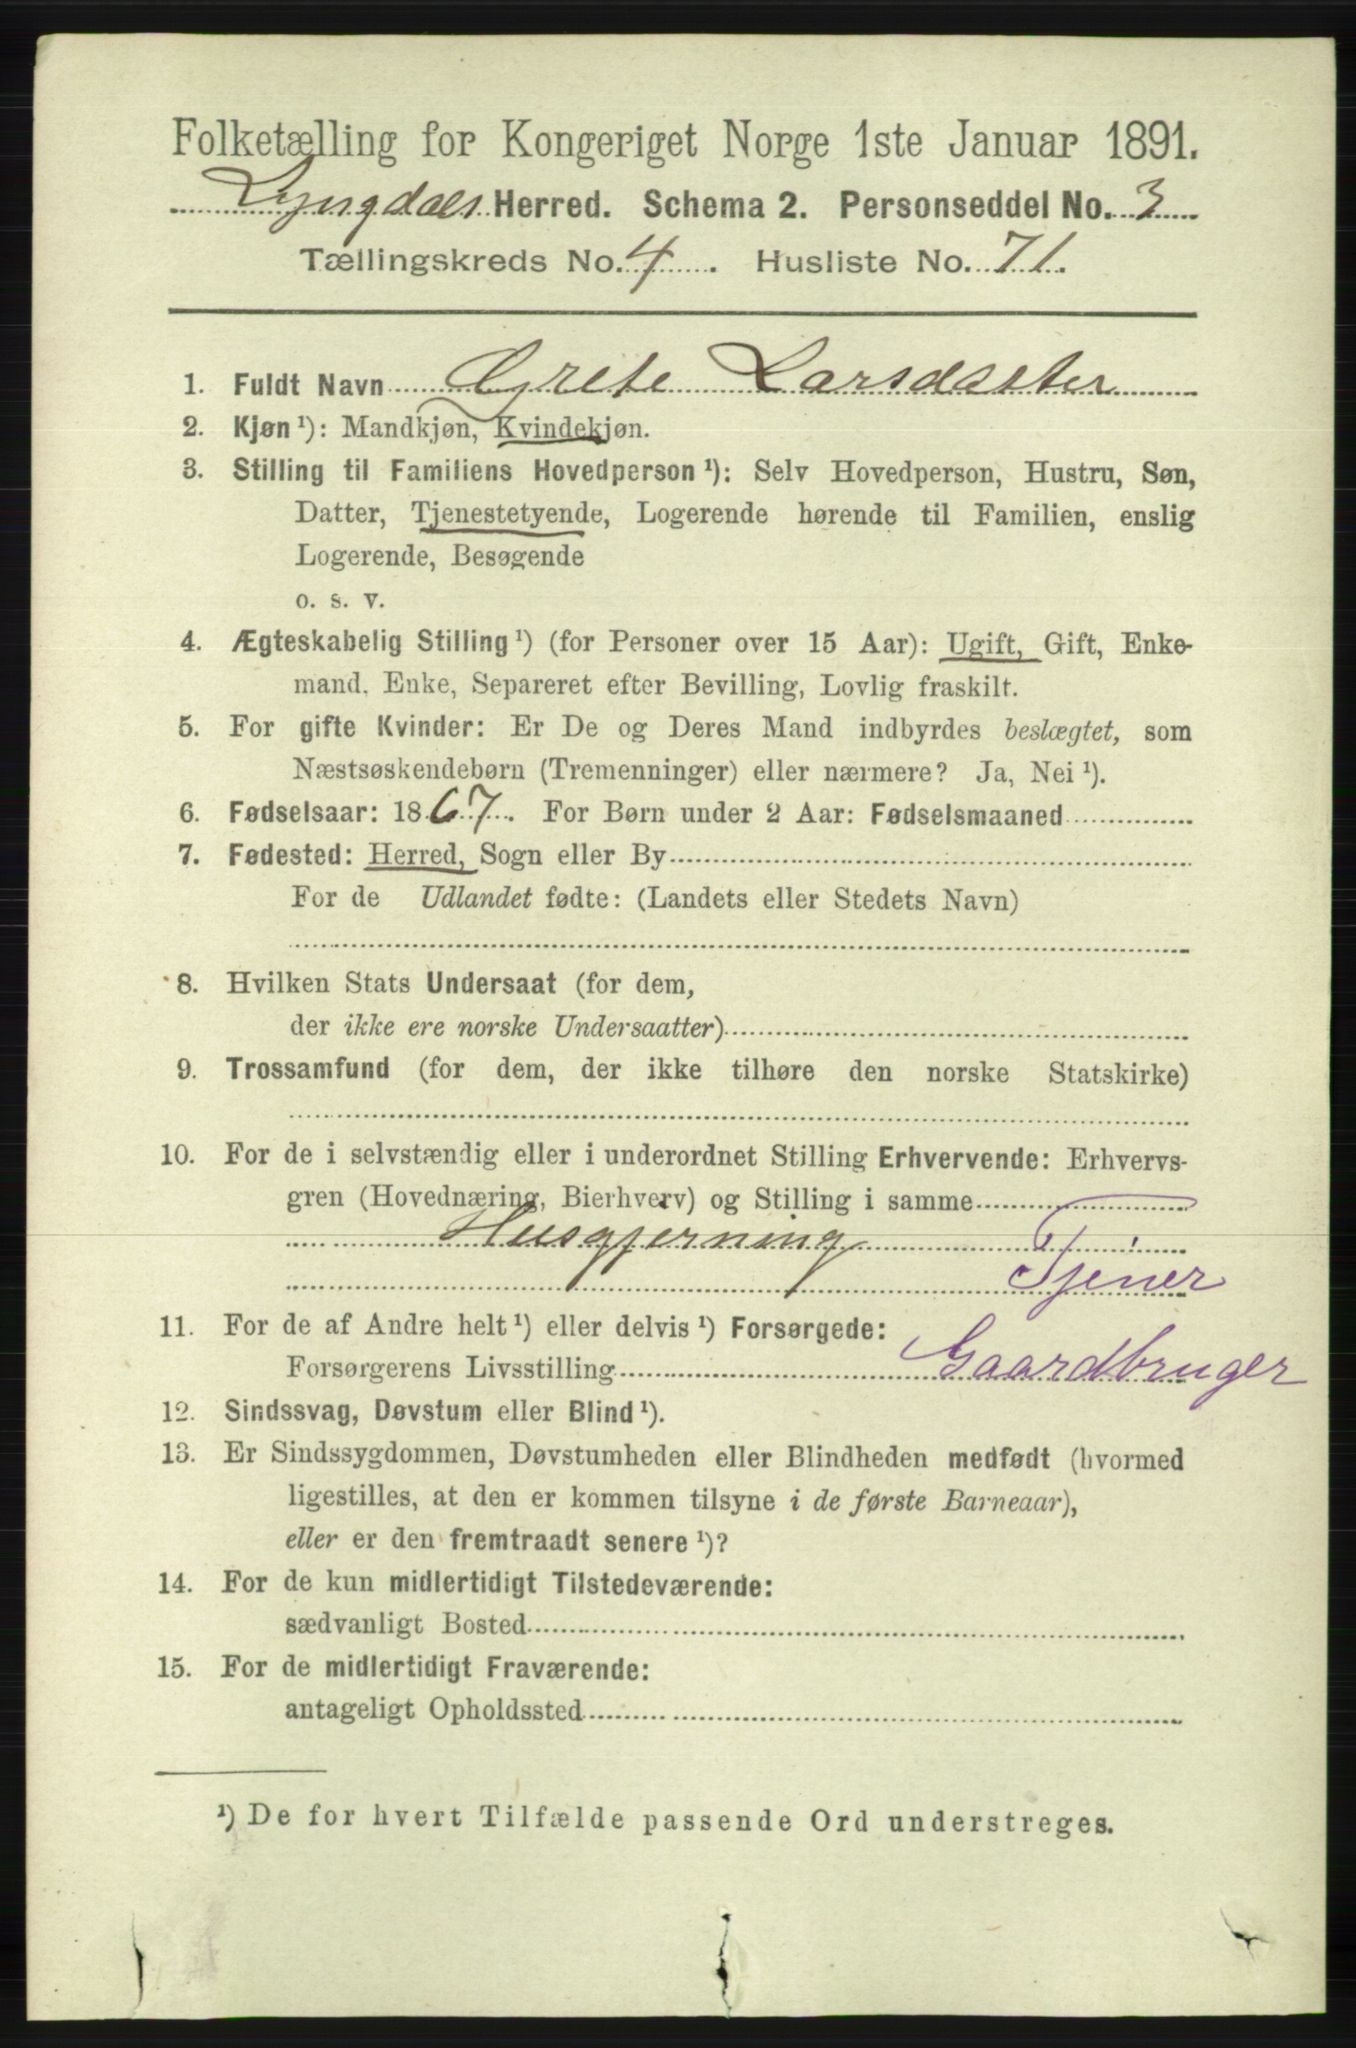 Folketælling for Kongeriget Norge 1ste Januar 1891.
Lyngdals Herred. Schema 2. Personseddel No. 3
Tællingskreds No. 4. Husliste No. 71.
1. Fuldt Navn Grete Larsdatter
2. Kjøn ¹): Mandkjøn, Kvindekjøn.
3. Stilling til Familiens Hovedperson ¹): Selv Hovedperson, Hustru, Søn,
Datter, Tjenestetyende, Logerende hørende til Familien, enslig
Logerende, Besøgende
o. s. v.
4. Ægteskabelig Stilling ¹) (for Personer over 15 Aar): Ugift, Gift, Enke-
mand, Enke, Separeret efter Bevilling, Lovlig fraskilt.
5. For gifte Kvinder: Er De og Deres Mand indbyrdes beslægtet, som
Næstsøskendebørn (Tremenninger) eller nærmere? Ja, Nei ¹).
6. Fødselsaar: 1867. For Børn under 2 Aar: Fødselsmaaned
7. Fødested: Herred, Sogn eller By
For de Udlandet fødte: (Landets eller Stedets Navn)
8. Hvilken Stats Undersaat (for dem,
der ikke ere norske Undersaatter)
9. Trossamfund (for dem, der ikke tilhøre den norske Statskirke)
10. For de i selvstændig eller i underordnet Stilling Erhvervende: Erhvervs-
gren (Hovednæring, Bierhverv) og Stilling i samme
Husgjerning
Tjener
11. For de af Andre helt ¹) eller delvis ¹) Forsørgede:
Forsørgerens Livsstilling Gaardbruger
12. Sindssvag, Døvstum eller Blind ¹).
13. Er Sindssygdommen, Døvstumheden eller Blindheden medfødt (hvormed
ligestilles, at den er kommen tilsyne i de første Barneaar),
eller er den fremtraadt senere ¹)?
14. For de kun midlertidigt Tilstedeværende:
sædvanligt Bosted
15. For de midlertidigt Fraværende:
antageligt Opholdssted
¹) De for hvert Tilfælde passende Ord understreges.